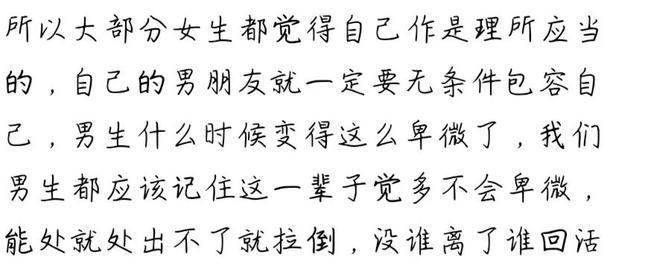 所以大部分女生都觉得自己作是理所应当
的，自己的男朋友就一定要无条件包容自
己，男生什么时候变得这么卑微了，我们
男生都应该记住这一辈子觉多不会卑微，
能处就处出不了就拉倒，没谁离了谁回活